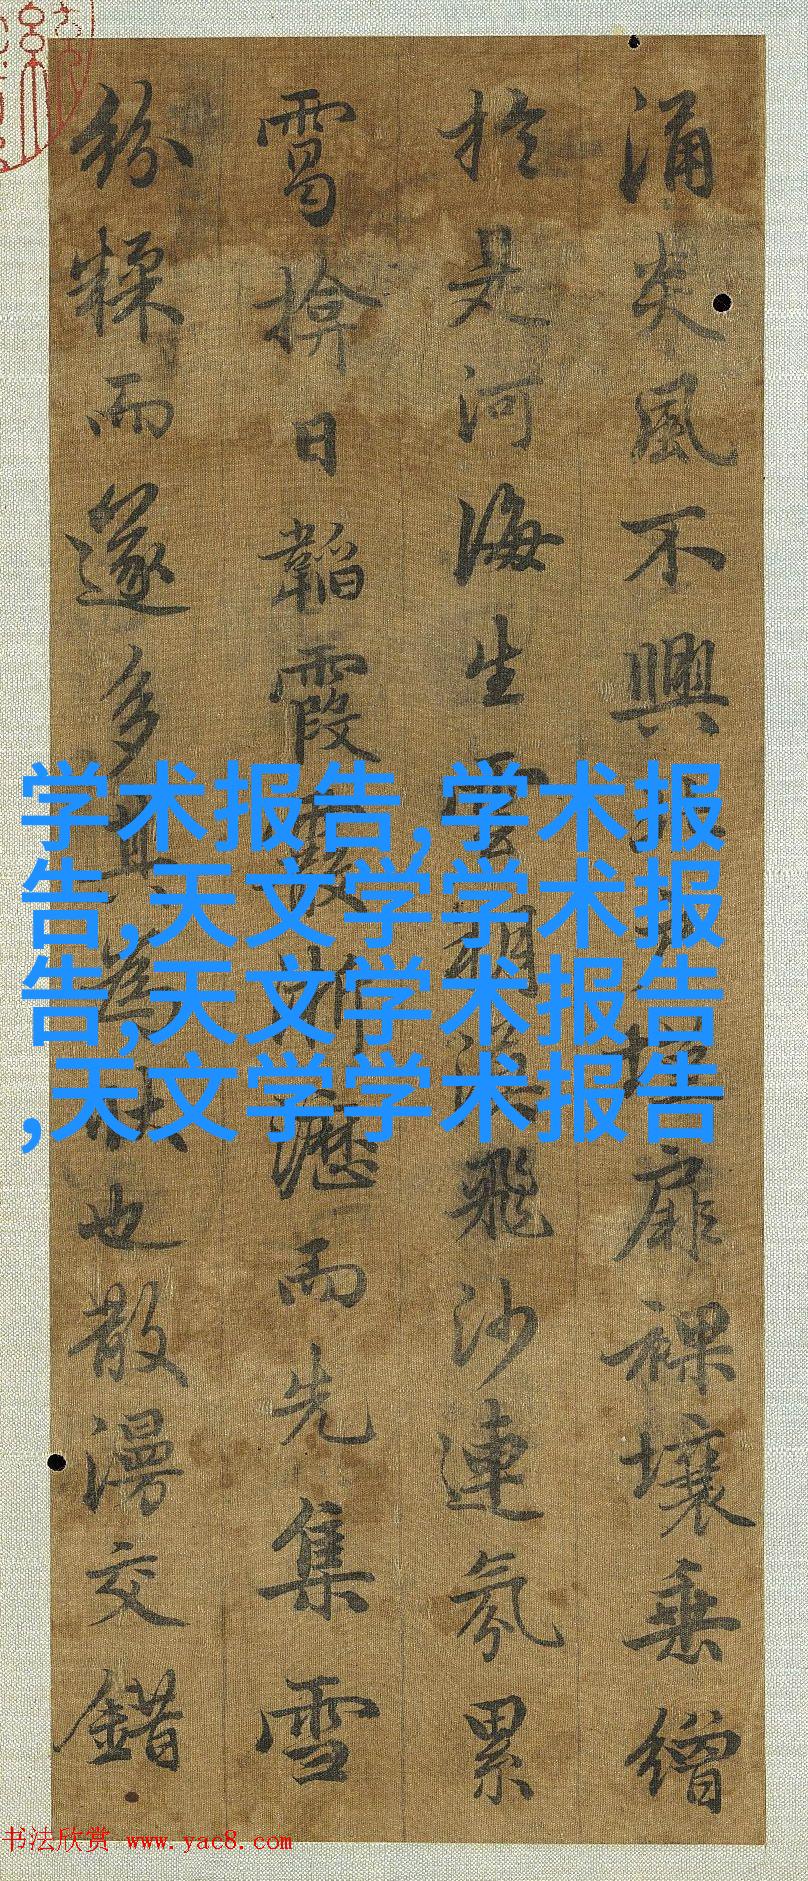 涌炎風不興
扉裸壤垂繒
於是河海生雲朔漠飛沙連氛累
霄揜日韜霞霰淅瀝而先集雪
紛糅而遂多其為狀也散漫交錯
学术报告,学术报
告,天文学学术报
告,天文学术报告
,天文学学术报告
书法欣赏 www.yac8.com